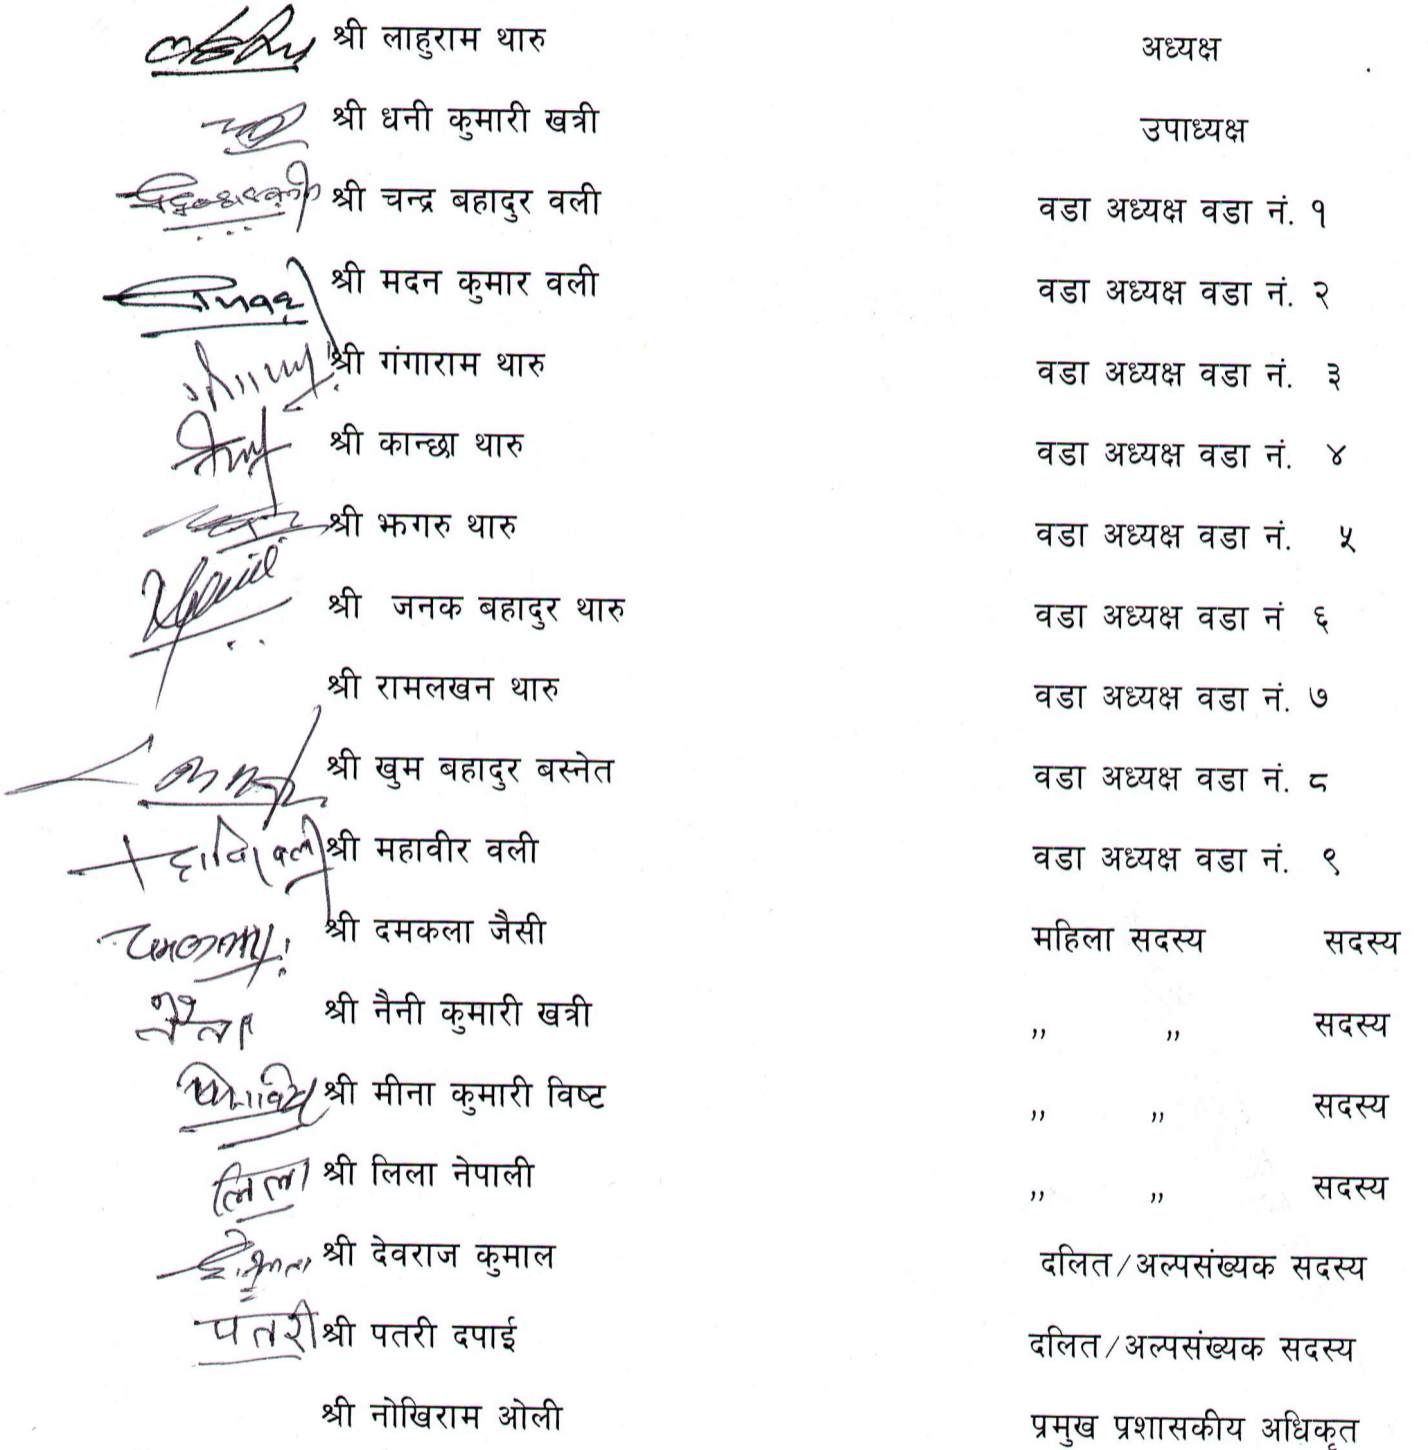 श्री लाहुराम थारु अध्यक्ष
श्री धनी कुमारी खत्री उपाध्यक्ष
श्री चन्द्र बहादुर वली वडा अध्यक्ष वडा नं. १
श्री मदन कुमार वली वडा अध्यक्ष वडा नं. २
श्री गंगाराम थारु वडा अध्यक्ष वडा नं. ३
श्री कान्छा थारु वडा अध्यक्ष वडा नं. ४
श्री झगरु थारु वडा अध्यक्ष वडा नं. ५
श्री जनक बहादुर थारु वडा अध्यक्ष वडा नं ६
श्री रामलखन थारु वडा अध्यक्ष वडा नं. ७
श्री खुम बहादुर बस्नेत वडा अध्यक्ष वडा नं. ८
श्री महावीर वली वडा अध्यक्ष वडा नं. ९
श्री दमकला जैसी महिला सदस्य सदस्य
श्री नैनी कुमारी खत्री ,, ,, सदस्य
श्री मीना कुमारी विष्ट ,, ,, सदस्य
लिला श्री लिला नेपाली ,, ,, सदस्य
श्री देवराज कुमाल दलित/अल्पसंख्यक सदस्य
पतरी श्री पतरी दपाई दलित/अल्पसंख्यक सदस्य
श्री नोखिराम ओली प्रमुख प्रशासकीय अधिकृत